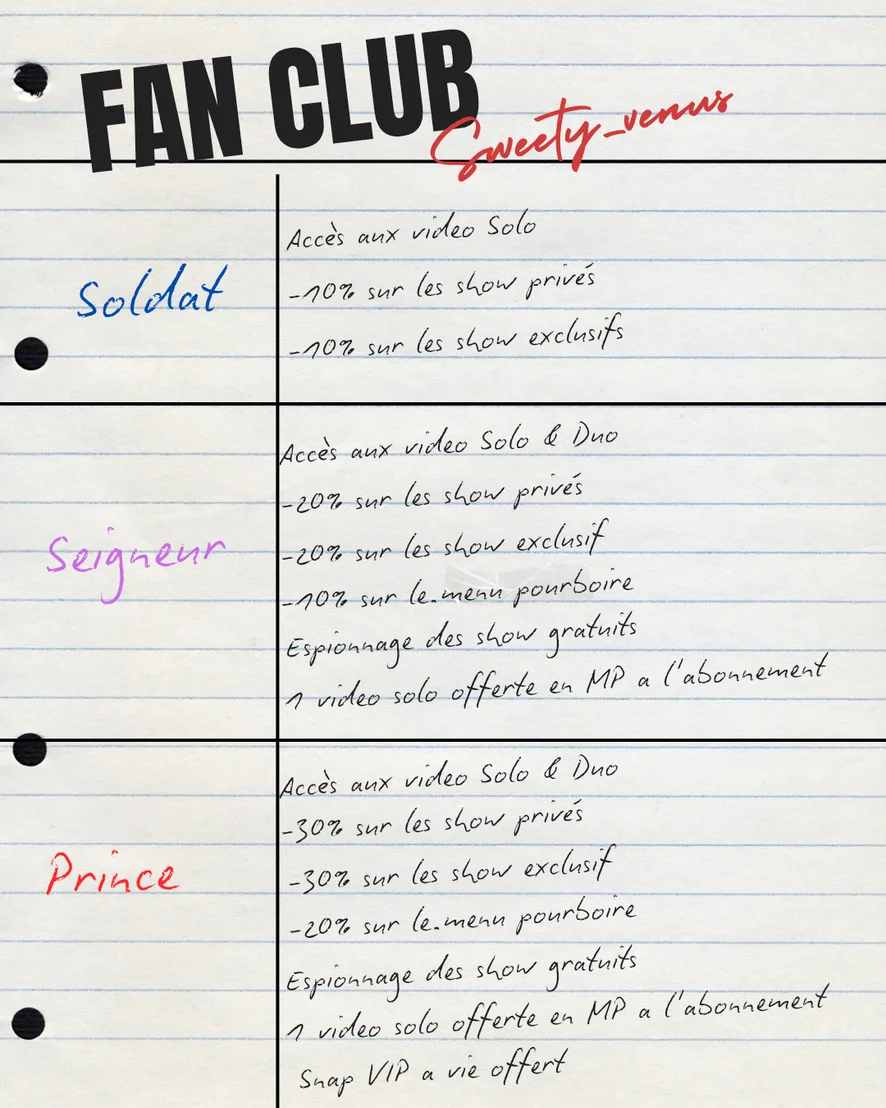 FAN CLUB
Sweety_venus
Soldat
Accès aux video Solo
-10% sur les show privés
-10% sur les show exclusifs
Seigneur
Accès aux video Solo & Duo
-20% sur les show privés
-20% sur les show exclusif
-10% sur le.menu pourboire
Espionnage des show gratuits
1 video solo offerte en MP a l'abonnement
Prince
Accès aux video Solo & Duo
-30% sur les show privés
-30% sur les show exclusif
-20% sur le.menu pourboire
Espionnage des show gratuits
1 video solo offerte en MP a l'abonnement
Snap VIP a vie offert